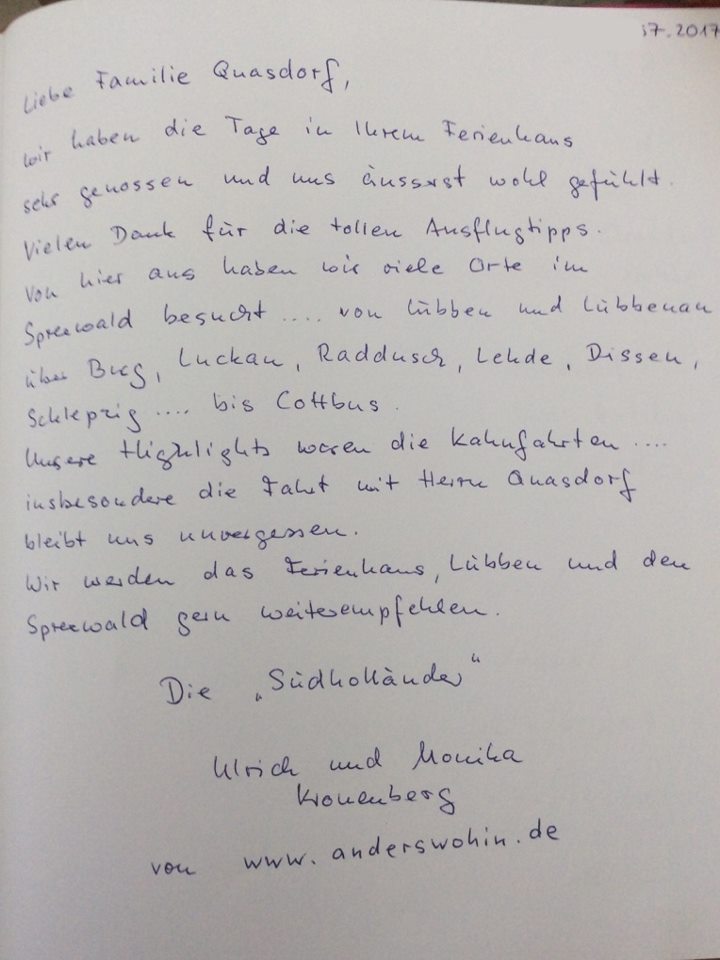 37.2017
Liebe Familie Quasdorf,
wir haben die Tage in Ihrem Ferienhaus
sehr genossen und uns äusserst wohl gefühlt.
Vielen Dank für die tollen Ausflugtipps.
Von hier aus haben wir viele Orte im
Spreewald besucht .... von Lübben und Lübbenau
über Burg, Luckau, Raddusch, Lehde, Dissen,
Schlepzig .... bis Cottbus.
Unsere Highlights waren die Kahnfahrten ....
insbesondere die Fahrt mit Herrn Quasdorf
bleibt uns unvergessen.
Wir werden das Ferienhaus, Lübben und den
Spreewald gern weiterempfehlen.
Die „Südholländer"
Ulrich und Monika
Kronenberg
von www.anderswohin.de